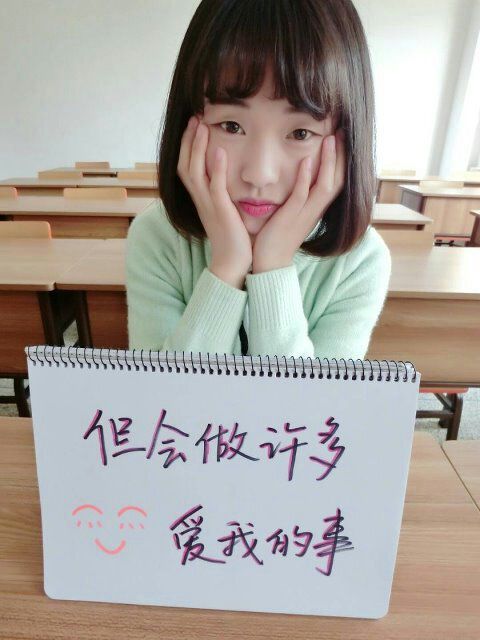 但会做许多
爱我的事